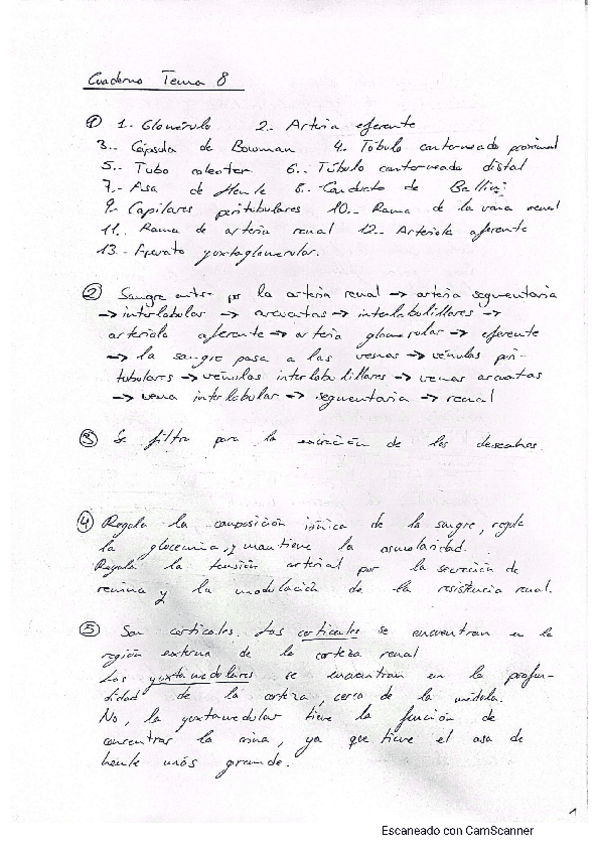 Cuaderno Tema 8
① 1.- Glomérulo 2.- Arteria eferente
3.- Cápsula de Bowman 4.- Túbulo contorneado proximal
5.- Tubo colector 6.- Túbulo contorneado distal
7.- Asa de Henle 8.- Conducto de Bellini
9.- Capilares peritubulares 10.- Rama de la vena renal
11.- Rama de arteria renal 12.- Arteriola aferente
13.- Aparato yuxtaglomerular.
② Sangre entra por la arteria renal → arteria segmentaria
→ interlobular → arcuatas → interlobulillares →
arteriola aferente → arteria glomerular → eferente
→ la sangre pasa a las venas → vénulas peri-
tubulares → vénulas interlobulillares → venas arcuatas
→ vena interlobular → segmentaria → renal
③ Se filtra para la excreción de los desechos.
④ Regula la composición iónica de la sangre, regula
la glucemia, y mantiene la osmolaridad.
Regula la tensión arterial por la secreción de
renina y la modulación de la resistencia renal.
⑤ Son corticales. Las corticales se encuentran en la
región externa de la corteza renal
Las yuxtamedulares se encuentran en la profun-
didad de la corteza, cerca de la médula.
No, la yuxtamedular tiene la función de
concentrar la orina, ya que tiene el asa de
henle más grande.
1
Escaneado con CamScanner